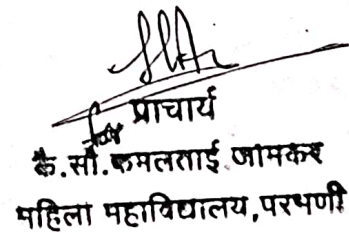 प्राचार्य
कै.सौ.कमलताई जामकर
महिला महाविद्यालय,परभणी